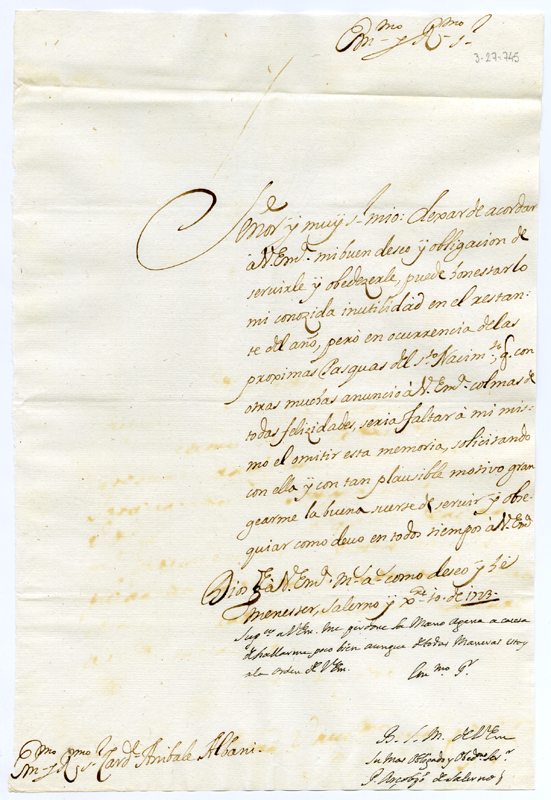 Em.mo y R.mo s.r
3-27-745
Señor y muy s.r mio: dexar de acordar
à V. Em.a mi buen deseo y obligacion de
servirle y obedezerle, puede honestarlo
mi conozida inutilidad en el restan-
te del año, pero en ocurrencia de las
proximas Pasquas del s.to Nacim.to q. con
otras muchas anunciò à V. Em.a colmas de
todas felizidades, seria faltar à mi mis-
mo el omitir esta memoria, solicitando
con ella y con tan plausible motivo gran
gearme la buena suerte de servir y obse-
quiar como devo en todos tiempos à V. Em.a
Dios g.e à V. Em.a m.s a.s como deseo y he
menester, Salerno y X.re 10. de 1723.
Sup.co a V. Em. me perdone la Mano agena a causa
de hallarme poco bien aunque de todas Maneras estoy
a la orden de V. Em.
Em.mo S.r
B. L. M. de V. Em
su mas obligado y
P. Arçobpo de Salerno
Em.mo y R.mo s.r Card.l Anibale Albani.